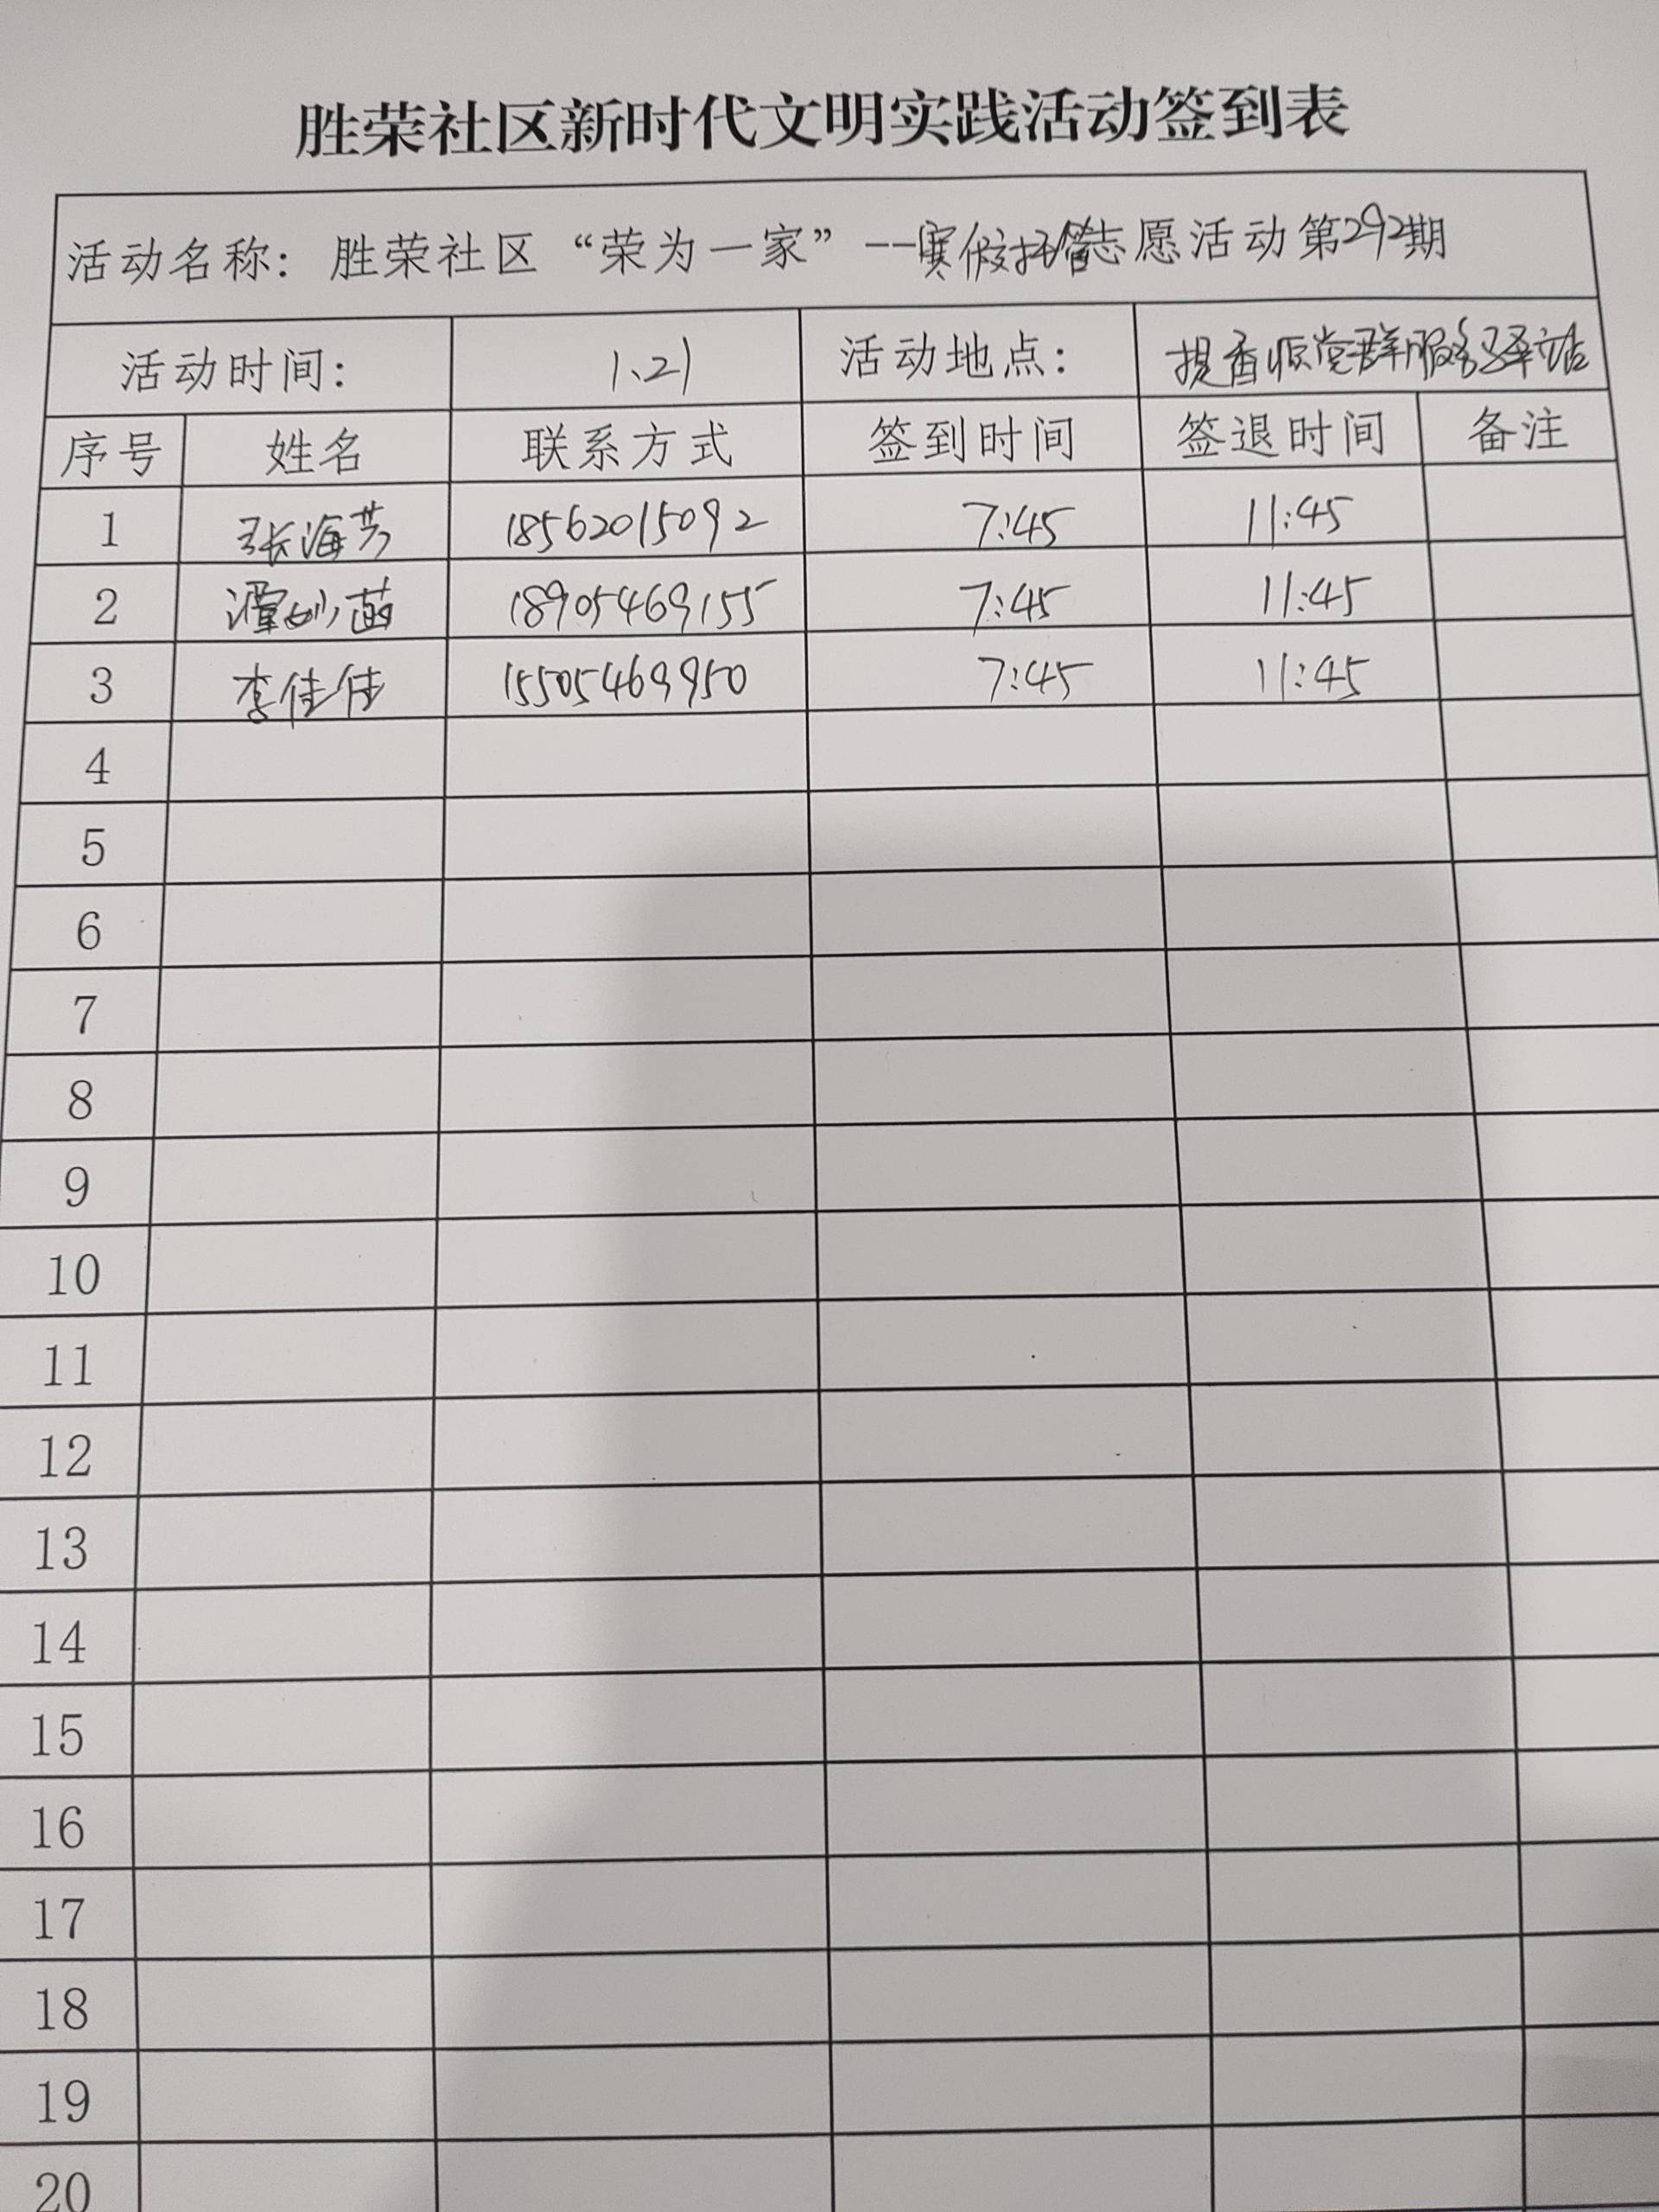 胜荣社区新时代文明实践活动签到表
活动名称：胜荣社区“荣为一家”--寒假托管志愿活动第292期
活动时间： 1.21 活动地点： 提香湾党群服务驿站
序号 姓名 联系方式 签到时间 签退时间 备注
1 张海芳 18562015092 7:45 11:45
2 潭妙茵 18905469155 7:45 11:45
3 李佳佳 15505469950 7:45 11:45
4
5
6
7
8
9
10
11
12
13
14
15
16
17
18
19
20